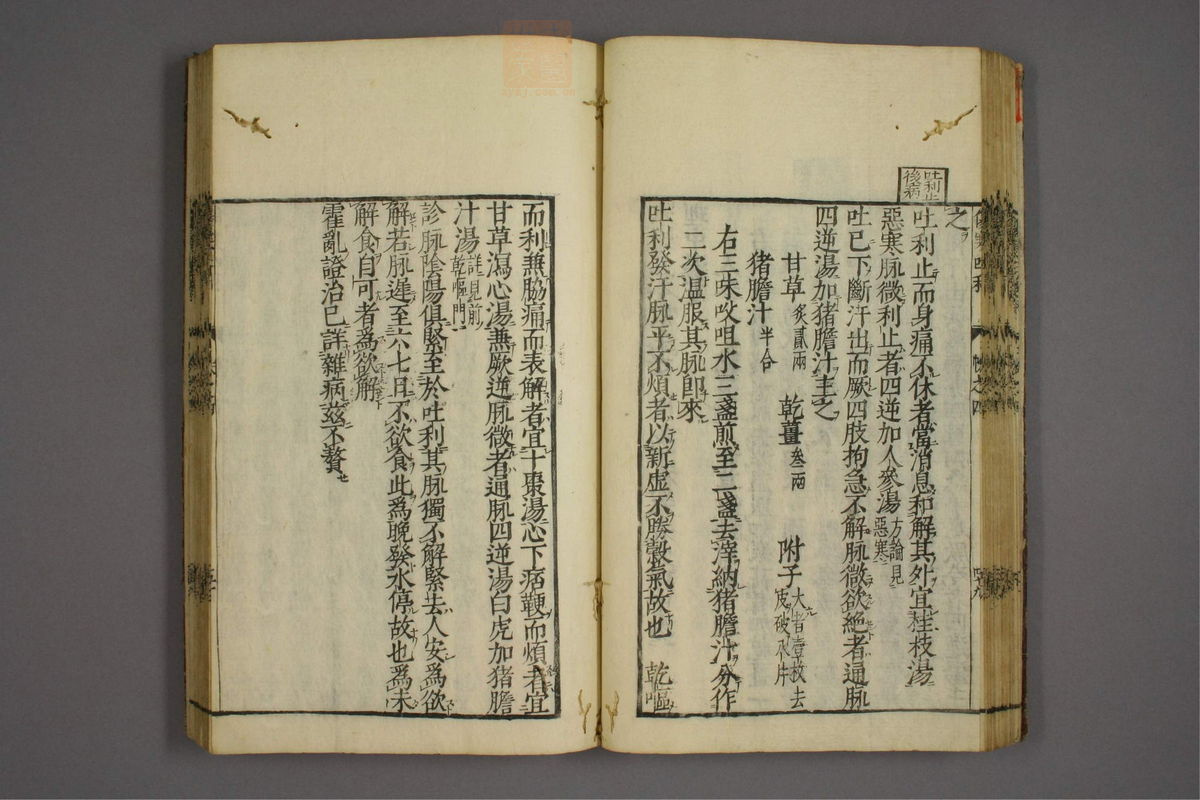 吐利止
後病
之
吐利止而身痛不休者當消息和解其外宜桂枝湯
惡寒脉微利止者四逆加人參湯方論見惡寒
吐已下斷汗出而厥四肢拘急不解脉微欲絶者通脉
四逆湯加猪膽汁主之
甘草炙貳兩 乾薑叁兩 附子大者壹枚去皮破八片
猪膽汁半合
右三味㕮咀水三盞煎至二盞去滓納猪膽汁分作
二次溫服其脉卽來
吐利發汗脉平不煩者以新虛不勝穀氣故也 乾嘔
而利兼脇痛而表解者宜十棗湯心下痞鞕而煩者宜
甘草瀉心湯兼厥逆脉微者通脉四逆湯白虎加猪膽
汁湯詳見前乾嘔門
診脉陰陽俱緊至於吐利其脉獨不解緊去人安爲欲
解若脉遲至六七日不欲食此爲晚發水停故也爲未
解食自可者爲欲解
霍亂證治已詳雜病兹不贅